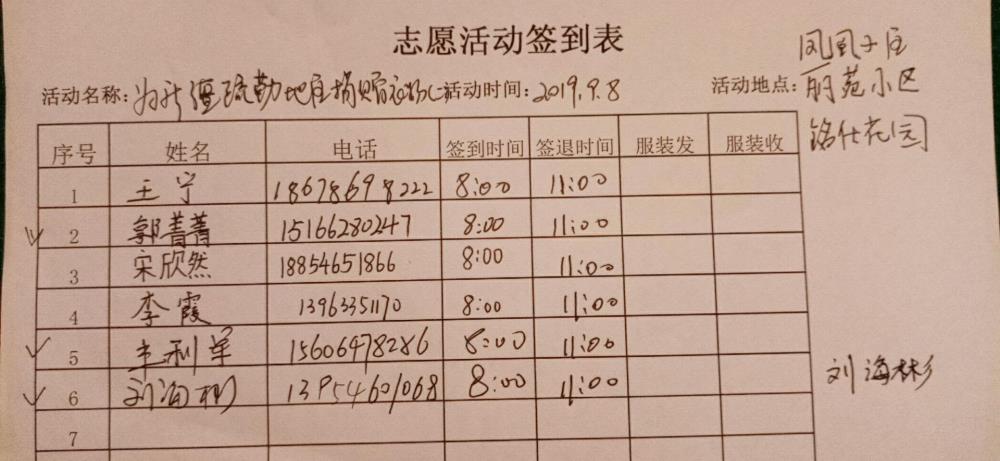 志愿活动签到表
活动名称: 为新疆疏勒地区捐赠衣物 活动时间: 2019.9.8 活动地点: 凤凰小区
丽苑小区
铭仕花园
序号 姓名 电话 签到时间 签退时间 服装发 服装收
1 王宁 18678698222 8:00 11:00
2 郭菁菁 15166280247 8:00 11:00
3 宋欣然 18854651866 8:00 11:00
4 李霞 13963351170 8:00 11:00
5 利军 15606478286 8:00 11:00
6 刘海彬 13954601068 8:00 11:00
刘海彬
7